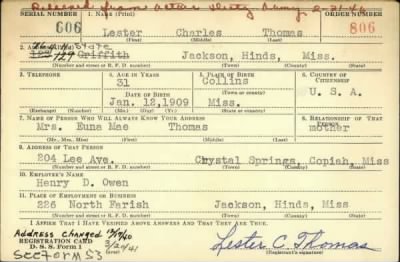 Released from Active Duty Army 2-21-46
SERIAL NUMBER 1. NAME (Print) ORDER NUMBER
606 Lester Charles Thomas 806
(First) (Middle) (Last)
2. ADDRESS (Print)
State
129 Griffith Jackson, Hinds, Miss.
(Number and street or R. F. D. number) (Town) (County) (State)
3. TELEPHONE 4. AGE IN YEARS 5. PLACE OF BIRTH 6. COUNTRY OF CITIZENSHIP
31 Collins
(Town or county)
DATE OF BIRTH
Jan. 12, 1909 Miss. U. S. A.
(Exchange) (No.) (Mo.) (Day) (Yr.) (State or country)
7. NAME OF PERSON WHO WILL ALWAYS KNOW YOUR ADDRESS 8. RELATIONSHIP OF THAT PERSON
Mrs. Euna Mae Thomas mother
(Mr., Mrs., Miss) (First) (Middle) (Last)
9. ADDRESS OF THAT PERSON
204 Lee Ave. Crystal Springs, Copiah, Miss
(Number and street or R. F. D. number) (Town) (County) (State)
10. EMPLOYER'S NAME
Henry D. Owen
11. PLACE OF EMPLOYMENT OR BUSINESS
226 North Farish Jackson, Hinds, Miss
(Number and street or R. F. D. number) (Town) (County) (State)
I AFFIRM THAT I HAVE VERIFIED ABOVE ANSWERS AND THAT THEY ARE TRUE.
Address changed
REGISTRATION CARD
D. S. S. Form 1 3/20/41
See Form 53
Lester C. Thomas
(Registrant's signature)